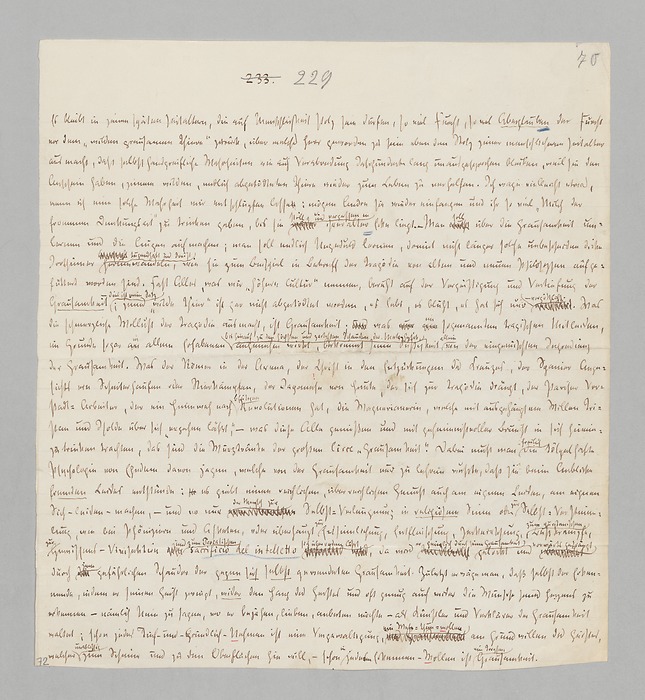 233. 229
70
Es bleibt in jenen späten Zeitaltern, die auf Menschlichkeit stolz sein dürfen, so viel Furcht, so viel Aberglauben der Furcht
vor dem „wilden grausamen Thiere" zurück, über welches Herr geworden zu sein eben den Stolz jener menschlicheren Zeitalter
ausmacht, daß selbst handgreifliche Wahrheiten wie auf Verabredung Jahrhunderte lang unausgesprochen bleiben, weil sie den
Anschein haben, jenem wilden, endlich abgetödteten Thiere wieder zum Leben zu verhelfen. Ich wage vielleicht etwas,
wenn ich eine solche Wahrheit mir entschlüpfen lasse: mögen Andere sie wieder einfangen und ihr so viel „Milch der
frommen Denkungsart" zu trinken geben, bis sie still und vergessen in ihrer alten Ecke liegt. — Man soll über die Grausamkeit um-
lernen und die Augen aufmachen; man soll endlich Ungeduld lernen, damit nicht länger solche unbescheidne dicke
Irrthümer tugendhaft und dreist herumwandeln, wie sie zum Beispiel in Betreff der Tragödie von alten und neuen Philosophen aufge-
füttert worden sind. Fast Alles, was wir „höhere Cultur" nennen, beruht auf der Vergeistigung und Vertiefung der
Grausamkeit — dies ist mein Satz; jenes „wilde Thier" ist gar nicht abgetödtet worden, es lebt, es blüht, es hat sich nur — vergöttlicht. Was
die schmerzliche Wollust der Tragödie ausmacht, ist Grausamkeit; was im sogenannten tragischen Mitleiden,
im Grunde sogar in allem Erhabenen bis hinauf zu den höchsten und zartesten Schaudern der Metaphysik, angenehm wirkt, bekommt seine Süssigkeit allein von der eingemischten Ingredienz
der Grausamkeit. Was der Römer in der Arena, der Christ in den Entzückungen des Kreuzes, der Spanier Ange-
sichts von Scheiterhaufen oder Stierkämpfen, der Japanese von Heute, der sich zur Tragödie drängt, der Pariser Vor-
stadt-Arbeiter, der ein Heimweh nach blutigen Revolutionen hat, die Wagnerianerin, welche mit ausgehängtem Willen Tri-
stan und Isolde über sich „ergehen läßt", — was diese Alle genießen und mit geheimnißvoller Brunst in sich hinein-
zutrinken trachten, das sind die Würztränke der großen Circe „Grausamkeit". Dabei muß man freilich die tölpelhafte
Psychologie von Ehedem davon jagen, welche von der Grausamkeit nur zu lehren wußte, daß sie beim Anblicke
fremden Leides entstünde: es giebt einen reichlichen, überreichlichen Genuß auch am eignen Leiden, am eignen
Sich-leiden-machen, — und wo nur der Mensch zur Selbst-Verleugnung im religiösen Sinne oder zur Selbst-Verstümme-
lung, wie bei Phöniziern und Asketen, oder überhaupt zur Entsinnlichung, Entfleischung, Zerknirschung, zum puritanischen Bußkrampfe,
zur Gewissens-Vivisektion und zum Pascalischen sacrifizio dell'intelletto sich überreden läßt, da wird er heimlich durch seine Grausamkeit gelockt und vorwärts gedrängt,
durch jene gefährlichen Schauder der gegen sich selbst gewendeten Grausamkeit. Zuletzt erwäge man, daß selbst der Erken-
nende, indem er seinen Geist zwingt, wider den Hang des Geistes und oft genug auch wider die Wünsche seines Herzens zu
erkennen — nämlich Nein zu sagen, wo er bejahen, lieben, anbeten möchte — als Künstler und Verklärer der Grausamkeit
waltet; schon jedes Tief- und Gründlich-Nehmen ist eine Vergewaltigung, ein Wehe-thun-wollen am Grundwillen des Geistes,
welcher unablässig zum Scheine und zu den Oberflächen hin will, — schon in jedem Erkennen-Wollen ist ein Tropfen Grausamkeit.
72